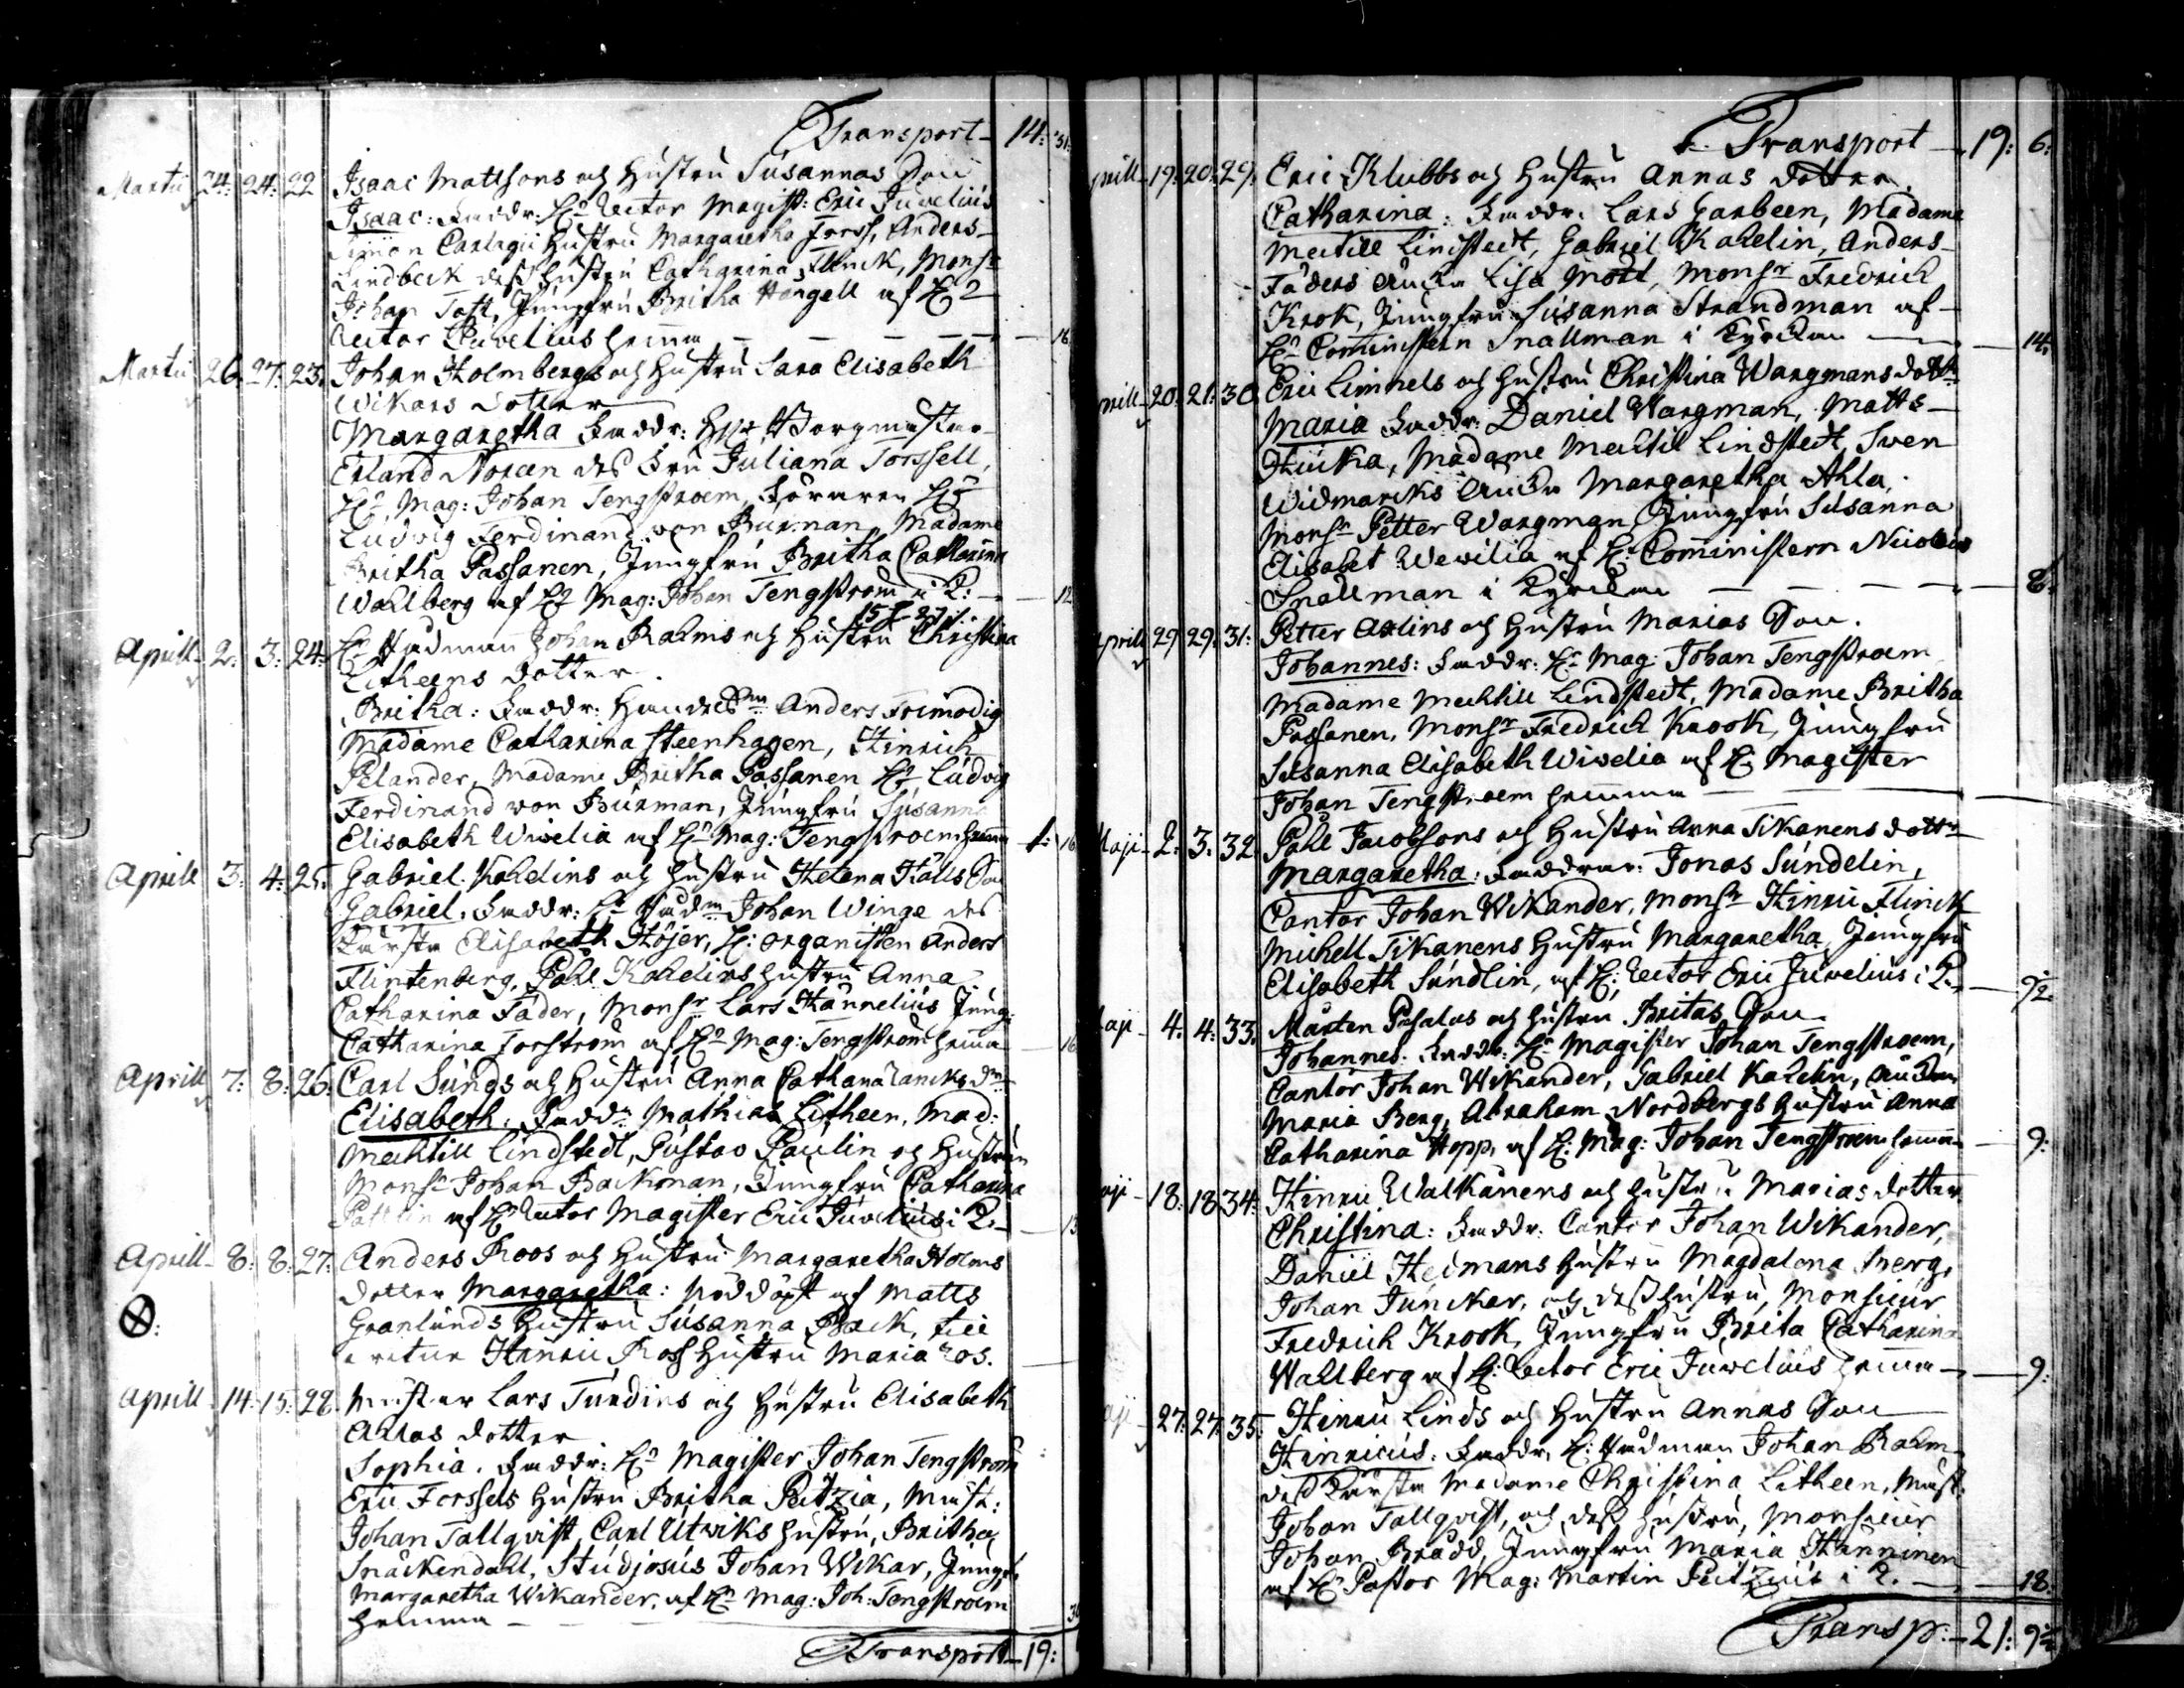 Transport 14: 31:
Martii 24: 24: 22 Isaac Mattsons och Hustru Susannas Son
Isaac: Faddr: Hr Rector Magist: Eric Juvelius
Simon Carlagii Hustru Margaretha Forss, Anders
Lindbeck dess Hustru Catharina Flinck, Monsr
Johan Tast, Jungfru Britha Horgell af Hr
Rector Juvelius hemma 18
Martii 26. 27. 23. Johan Holmbergs och Hustru Sara Elisabeth
Wikars dotter
Margaretha Faddr: Borgmästar
Erland Noreen des Fru Juliana Forssell,
Hr Mag: Johan Tengstroem, Hr
Ludvig Ferdinand von Burman, Madame
Britha Passanen, Jungfru Britha Catharina
Wahlberg af Hr Mag: Johan Tengstrom i K: 12
15 27
Aprill 2: 3: 24: Hr Rådman Johan Rahms och Hustru Christina
Litheens dotter.
Britha: Faddr: Handelsm Anders Frimodig
Madame Catharina Steenhagen, Hinrich
Pelander, Madame Britha Passanen Hr Ludvig
Ferdinand von Burman, Jungfru Susanna
Elisabeth Wivelia af Hr Mag: Tengstroem hemma 1: 16
Aprill 3: 4: 25. Gabriel Kahelins och Hustru Helena Hälls Son
Gabriel. Faddr: Hr Rådm Johan Winge des
Käresta Elisabeth Höjer, H: Organisten Anders
Flintenberg, Påhl Kahelins Hustru Anna
Catharina Fäder, Monsr Lars Hannelius Jung:
Catharina Forstrom af Hr Mag: Tengstrom hemma 16
Aprill 7: 8: 26. Carl Sunds och Hustru Anna Catharina dr
Elisabeth. Faddr Mathias Litheen, Mad:
Mechtill Lindstedt, Gustav Paulin och Hustrun
Monsr Johan Backman, Jungfru Catharina
af Hr Rector Magister Eric Juvelius i K. 13
Aprill 8: 8: 27: Anders Roos och Hustru Margaretha Holms
dotter Margaretha: Nöddöpt af Matts
Granlunds Hustru Susanna Back,
Hinric Ross Hustru Maria
Aprill 14. 15: 28. Mäster Lars Tundins och Hustru Elisabeth
Ahlas dotter
Sophia. Faddr: Hr Magister Johan Tengstrom
Eric Forssels Hustru Britha Peitzia, Mäst:
Johan Tallqvist, Carl Utviks Hustru, Britha
Snäckendahl, Studjosus Johan Wikar, Jungfr
Margaretha Wikander, af Hr Mag: Joh: Tengstroem
hemma 30
Transport 19:
Transport 19: 6:
prill 19. 20. 29. Eric Klubbs och Hustru Annas dotter.
Catharina: Faddr: Lars Garbeen, Madame
Mectill Lindstedt, Gabriel Kahelin, Anders
Fäders Änka Lisa Mört, Monsr Fredrich
Krok, Jungfru Susanna Strandman af
Hr Comministern Snallman i Kyrkan 14.
prill 20. 21: 30. Eric Limnels och Hustru Christina Wargmans dottr
Maria Faddr: Daniel Wargman, Matts
Hiuka, Madame Mechtil Lindstedt, Sven
Widmarcks Änka Margaretha Ahla,
Monsr Petter Wargman Jungfru Susanna
Elisabet Wewilia af H: Comministern Nicolaus
Snallman i Kyrkan 8.
Aprill 29 29. 31: Petter Axlins och Hustru Marias Son.
Johannes: Faddr: Hr Mag: Johan Tengstroem
Madame Mechtill Lindstedt, Madame Britha
Passanen, Monsr Fredrich Krook, Jungfru
Susanna Elisabeth Wiwelia af H: Magister
Johan Tengstroem hemma
Maji 2: 3. 32. Påhl Jacobsons och Hustru Anna Tikanens dottr
Margaretha: Faddrar: Jonas Sundelin,
Cantor Johan Wikander, Monsr Hinric Flinck
Michell Tikanens Hustru Margaretha, Jungfru
Elisabeth Sundlin, af H: Rector Eric Juvelius i K. 9½
aji 4. 4: 33. Mårten Pasalas och Hustru Britas Son
Johannes. Faddr: Hr Magister Johan Tengstroem,
Cantor Johan Wikander, Gabriel Kahelin, Änkan
Maria Berg, Abraham Nordbergs Hustru Anna
Catharina Hopp, af H: Mag: Johan Tengstroem hemma 9:
aji 18. 18 34: Hinric Walkanens och Hustru Marias dotter
Christina: Faddr: Cantor Johan Wikander,
Daniel Hedmans Hustru Magdalena Berg,
Johan Junckar, och dess Hustru, Monsieur
Fredrich Krook, Jungfru Brita Catharina
Wahlberg af H: Rector Eric Juvelius hemma 9:
aji 27. 27. 35. Hinric Linds och Hustru Annas Son
Hinricus: Faddr. H: Rådman Johan Rahm
dess Kärsta Madame Christina Litheen, Mäst.
Johan Tallqvist, och dess Hustru, Monsieur
Johan Brådd Jungfru Maria Hänninen
af Hr Pastor Mag: Martin Peitzius i K. 18:
Transp: 21: 9½